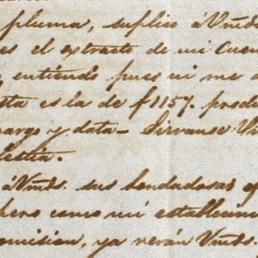 pluma, suplico á Vmds.
es el extracto de mi Cuen
, entiendo pues ni me a
ta es la de $1157. produ
argo y data - Sirvanse Vm
lestia.
á Vmds. sus bondadosas of
pero como mi establecim
omision, ya verán Vmds.